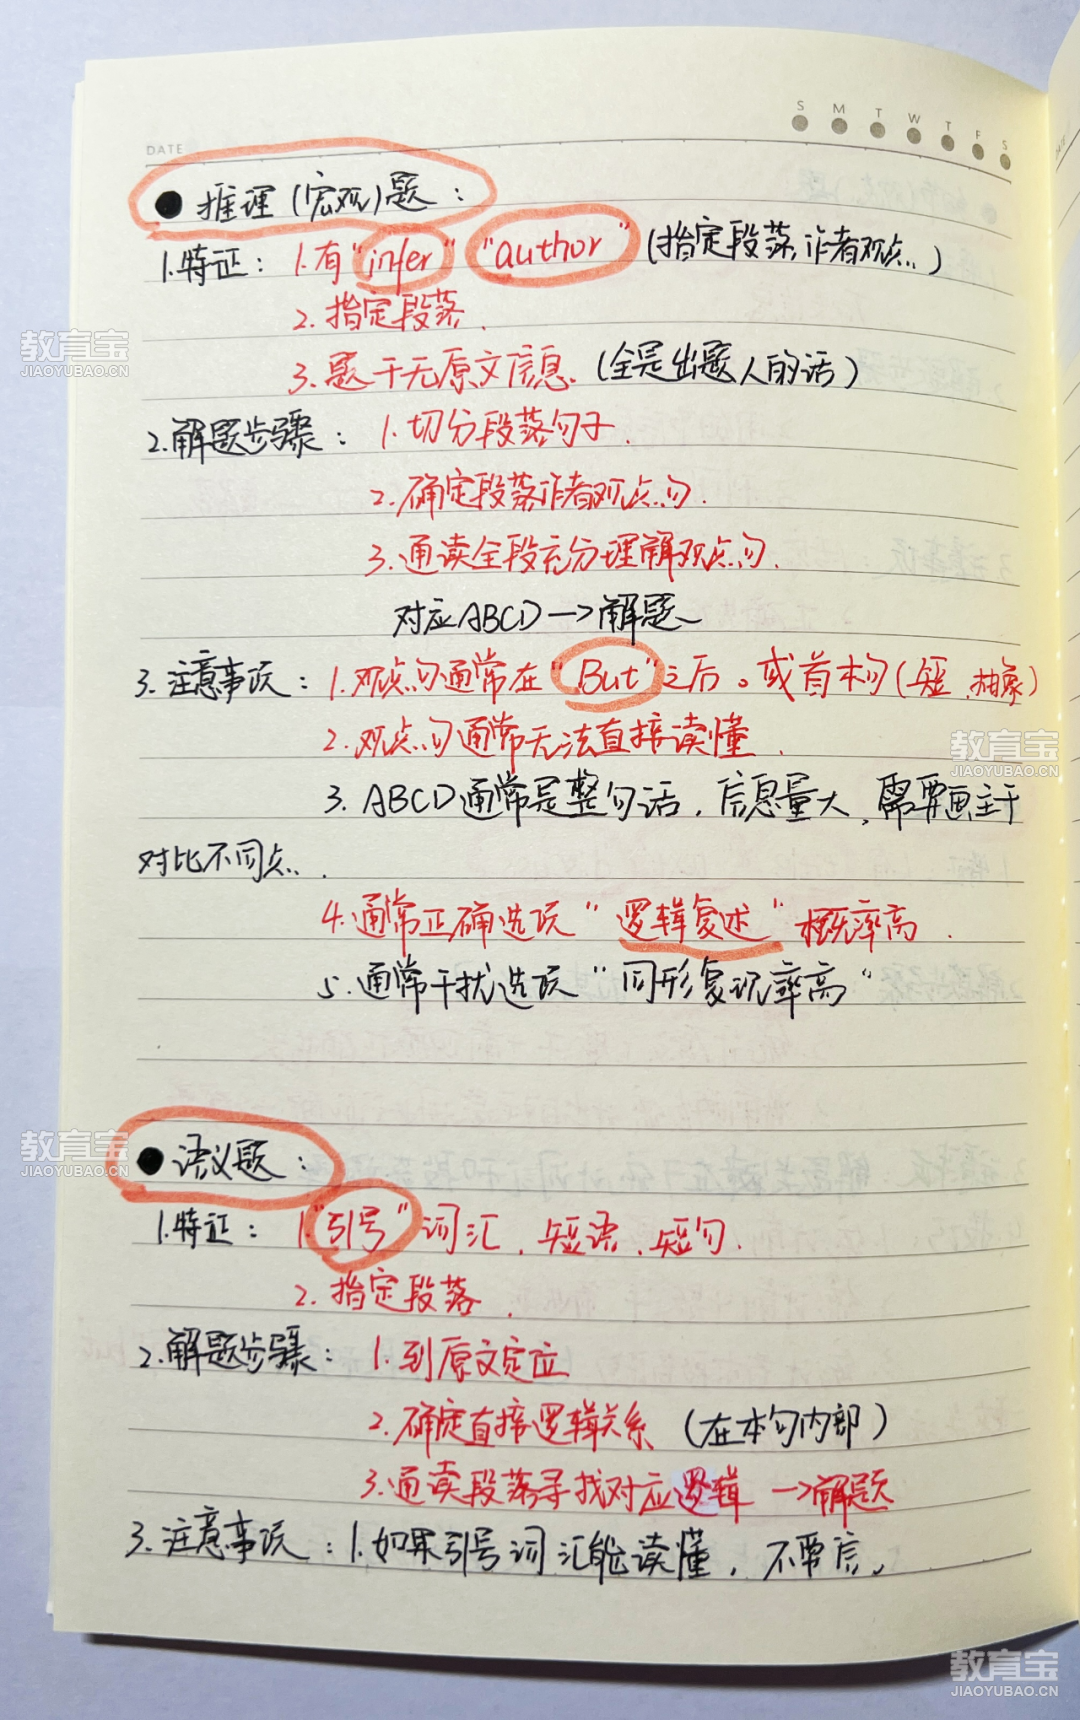 S M T W T F S
DATE
● 推理(宏观)题:
1.特证: 1.有"infer" "author" (指定段落,作者观点..)
2.指定段落.
3.题干无原文信息.(全是出题人的话)
2.解题步骤: 1.切分段落句子.
2.确定段落作者观点句.
3.通读全段充分理解观点句.
对应ABCD→解题
3.注意事项: 1.观点句通常在"But"之后。或首末句(短,抽象)
2.观点句通常无法直接读懂.
3.ABCD通常是整句话,信息量大,需要画主干
对比不同点..
4.通常正确选项"逻辑复述"概率高.
5.通常干扰选项"同形复现率高"
● 语义题:
1.特证: 1."引号"词汇,短语,短句.
2.指定段落.
2.解题步骤: 1.到原文定位
2.确定直接逻辑关系(在本句内部)
3.通读段落寻找对应逻辑→解题
3.注意事项: 1.如果引号词汇能读懂,不要信。
教育宝
JIAOYUBAO.CN
教育宝
JIAOYUBAO.CN
教育宝
JIAOYUBAO.CN
教育宝
JIAOYUBAO.CN